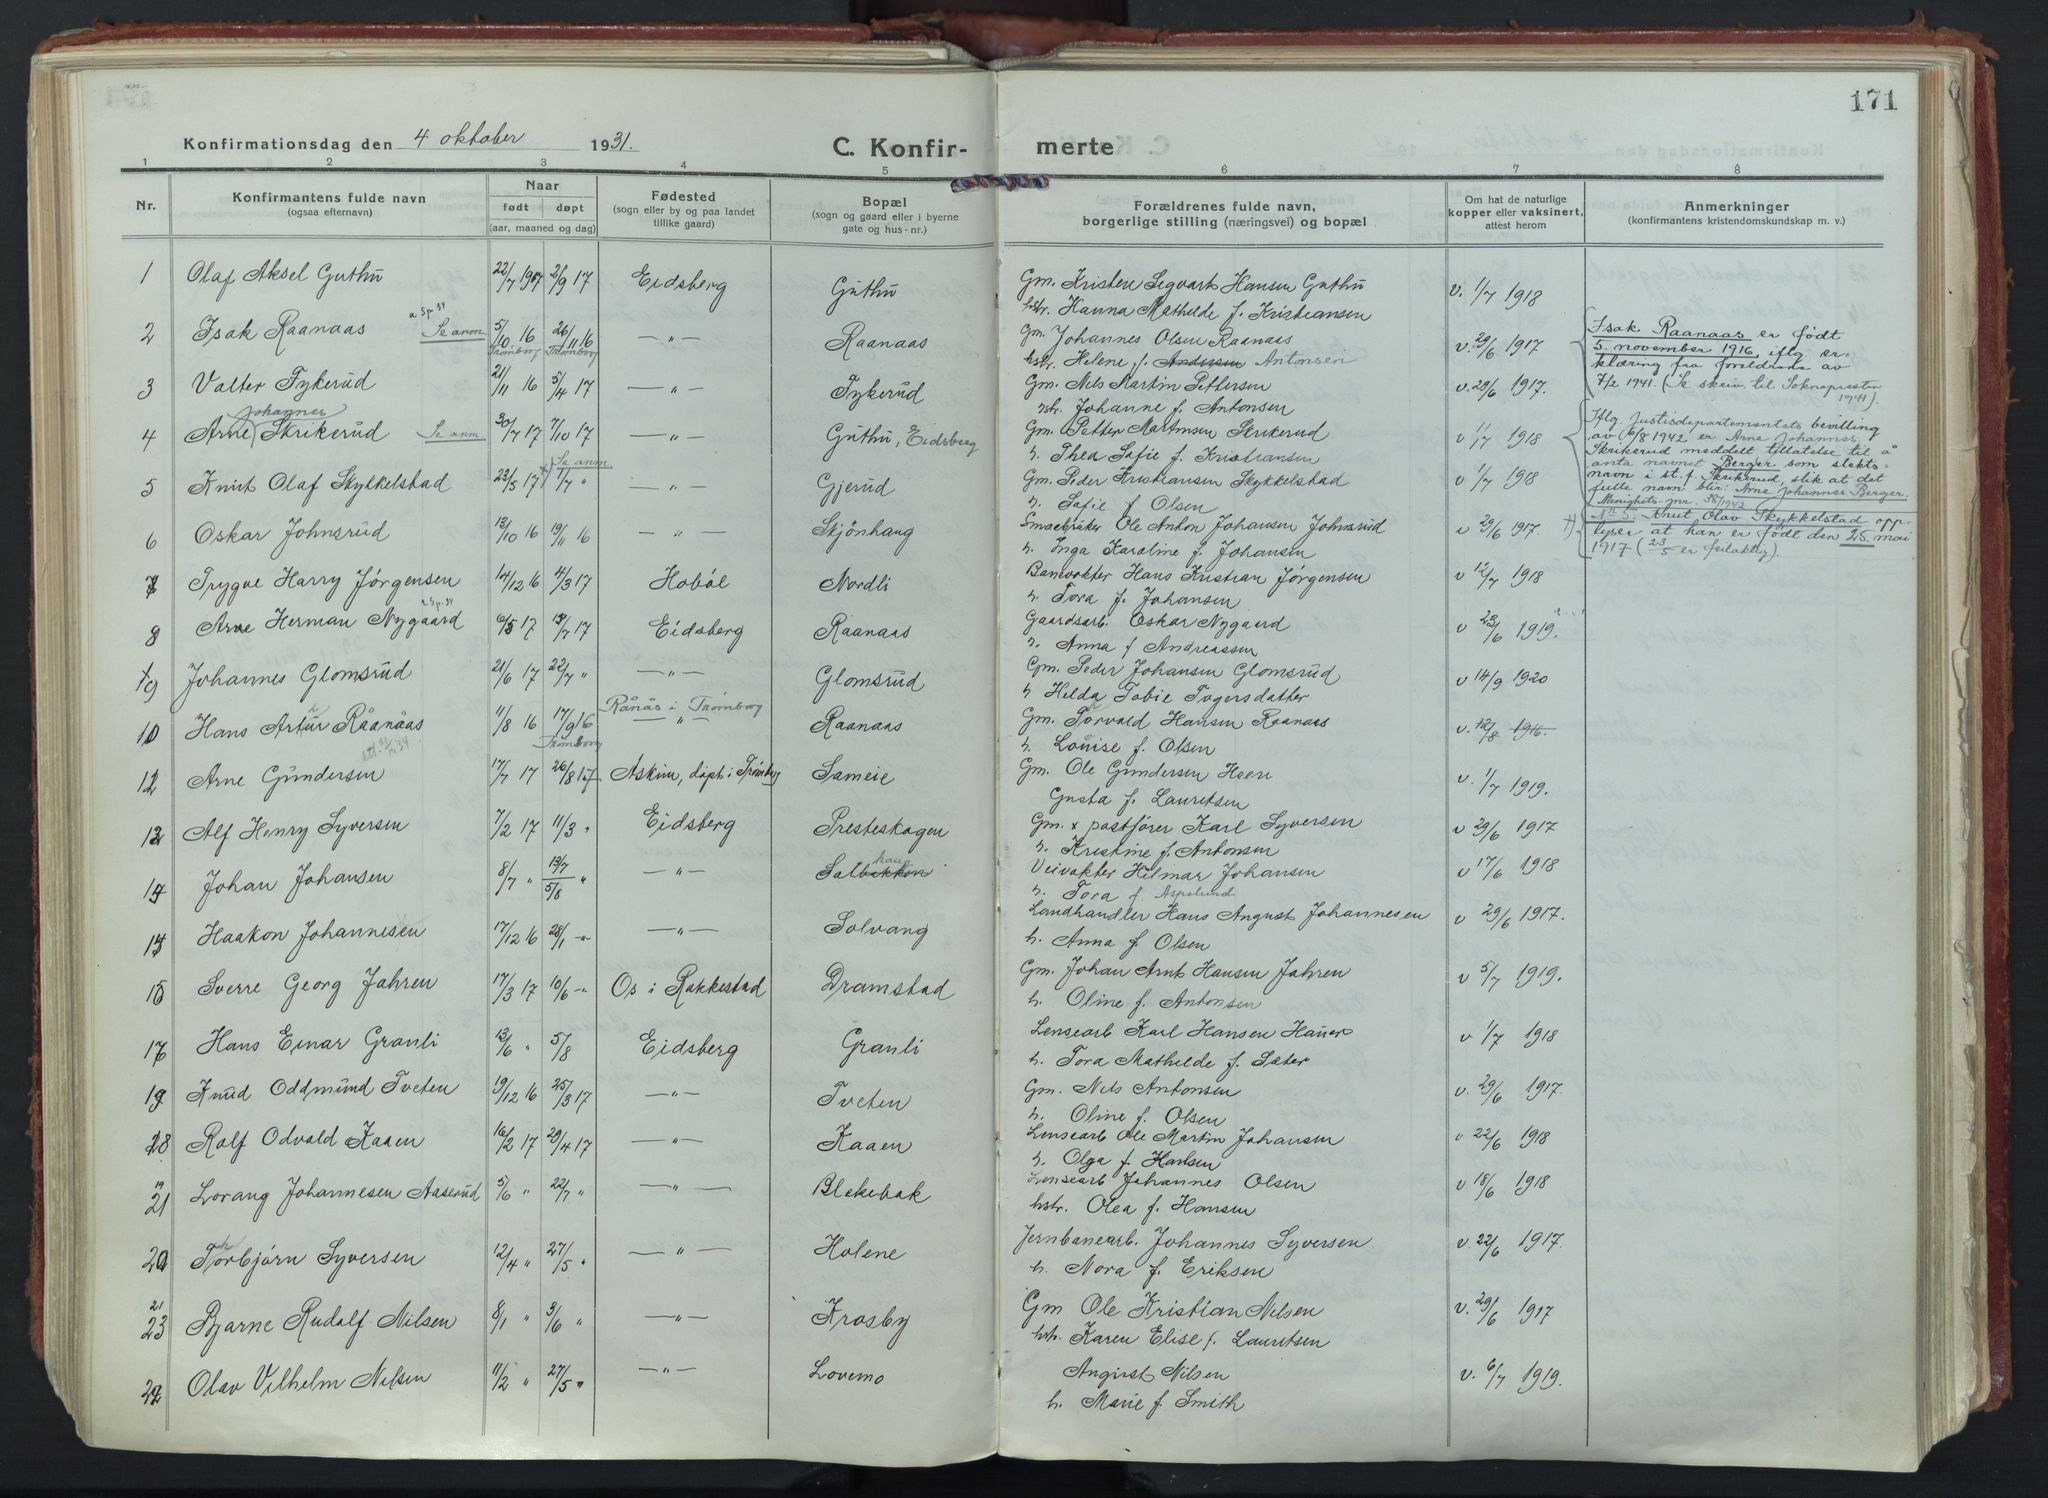 171
Konfirmationsdag den 4 oktober 1931.
C. Konfir-
merte
1 2 3 4 5 6 7 8
Nr.
Konfirmantens fulde navn
(ogsaa efternavn)
Naar
født døpt
(aar, maaned og dag)
Fødested
(sogn eller by og paa landet
tillike gaard)
Bopæl
(sogn og gaard eller i byerne
gate og hus-nr.)
Forældrenes fulde navn,
borgerlige stilling (næringsvei) og bopæl
Om hat de naturlige
kopper eller vaksinert,
attest herom
Anmerkninger
(konfirmantens kristendomskundskap m. v.)
1 Olaf Aksel Guthu 22/7 1917 2/9 17 Eidsberg Guthu Gm. Kristen Segvart Hansen Guthu v. 1/7 1918
hstr. Hanna Mathilde f. Kristiansen
2 Isak Raanaas Se anm. 5/10 16 26/11 16 —"— Raanaas Gm. Johannes Olsen Raanaas v. 29/6 1917
Trømborg Trømborg
hstr. Helene f. Andersen Antonsen
Isak Raanaas er født
5. november 1916, iflg. er-
klæring fra foreldrene av
7/2 1941. (Se skriv. til Sokneprester
1941).
3 Valter Tykerud 21/11 16 5/4 17 —"— Tykerud Gm. Nils Martin Pettersen v. 29/6 1917.
hstr. Johanne f. Antonsen
Johannes
4 Arne Skrikerud Se anm. 30/7 17 7/10 17 —"— Guthu, Eidsberg Gm. Petter Martinsen Skrikerud v 1/7 1918
h. Thea Sofie f. Kristiansen
Iflg. Justisdepartementets bevilling
av 6/8 1942 er Arne Johannes
Skrikerud meddelt tillatelse til å
anta navnet Berger som slekts-
navn i st. f. Skrikerud, slik at det
fulle navn blir: Arne Johannes Berger.
Se anm.
5 Knut Olaf Skykkelstad 23/5 17 1/7 " —"— Gjerud Gm. Peder Kristiansen Skykkelstad v 1/7 1918
h. Sofie f. Olsen
Nr. 5. Knut Olav Skykkelstad opp-
lyser at han er født den 25. mai
1917 (23/5 er feilaktig).
6 Oskar Johnsrud 13/10 16 19/11 16 —"— Skjönhaug Smaabruker Ole Anton Johansen Johnsrud v 29/6 1917.
h. Inga Karoline f. Johansen
7 Trygve Harry Jørgensen 14/12 16 4/3 17 Hobøl Nordli Banevokter Hans Kristian Jørgensen v 12/7 1918
h. Tora f. Johansen
8 Arne Herman Nygaard 6/5 17 15/7 17 Eidsberg Raanaas Gaardsarb. Oskar Nygaard v 23/6 1919.
h. Anna f Andreassen
9 Johannes Glomsrud 21/6 17 22/7 " —"— Glomsrud Gm. Peder Johansen Glomsrud v 14/9 1920
h Helda Tobie Togersdatter
Rånås i Trømborg
10 Hans Artur Råanåas 11/8 16 17/9 16 —"— Raanaas Gm. Torvald Hansen Raanaas v. 12/8 1916.
Trømborg
h. Louise f. Olsen
12 Arne Gundersen 17/7 17 26/8 17 Askim, døpt i Trømborg Sameie Gm. Ole Gundersen Hoen v. 1/7 1919.
Gusta f. Lauritsen
12 Alf Henry Syversen 7/2 17 11/3 " Eidsberg Presteskogen Gm. x postfører Karl Syversen v 29/6 1917
h. Kristine f. Antonsen
14 Johan Johansen 8/7 " 15/7 5/8 " —"— Solbakken haug Veivokter Hilmar Johansen v 17/6 1918
h. Tora f. Aspelund
14 Haakon Johannesen 17/12 16 28/1 -"- —"— Solvang Landhandler Hans August Johannesen v 29/6 1917.
h. Anna f. Olsen
15 Sverre Georg Jahren 17/3 17 10/6 -"- Os i Rakkestad Dramstad Gm. Johan Arnt Hansen Jahren v 5/7 1919.
h. Oline f. Antonsen
17 Hans Einar Granli 13/6 " 5/8 Eidsberg Granli Lensearb Karl Hansen Hauer v 1/7 1918
h. Tora Mathilde f. Sæter
19 Knud Oddmund Tveten 19/12 16 25/3 17 —"— Tveten Gm. Nils Antonsen v. 29/6 1917.
h. Oline f. Olsen
18 Rolf Odvald Kaaen 16/2 17 29/4 17 —"— Kaaen Lensearb Ole Martin Johansen v 22/6 1918
h. Olga f. Karlsen
19
21 Lorang Johannesen Aaserud 5/6 " 22/7 " —"— Blekebak Lensearb Johannes Olsen v 18/6 1918
hstr. Olea f. Hansen
20 Torbjørn Syversen 12/4 " 27/5 " —"— Holene Jernbanearb. Johannes Syversen v. 22/6 1917.
h. Nora f. Eriksen
21
23 Bjarne Rudolf Nilsen 8/1 " 3/6 " —"— Krosby Gm Ole Kristian Nilsen v. 29/6 1917
hstr. Karen Elise f. Lauritsen
22 Olav Vilhelm Nilsen 11/2 " 27/5 " —"— Lovemo August Nilsen v. 6/7 1919.
h. Marie f. Smith